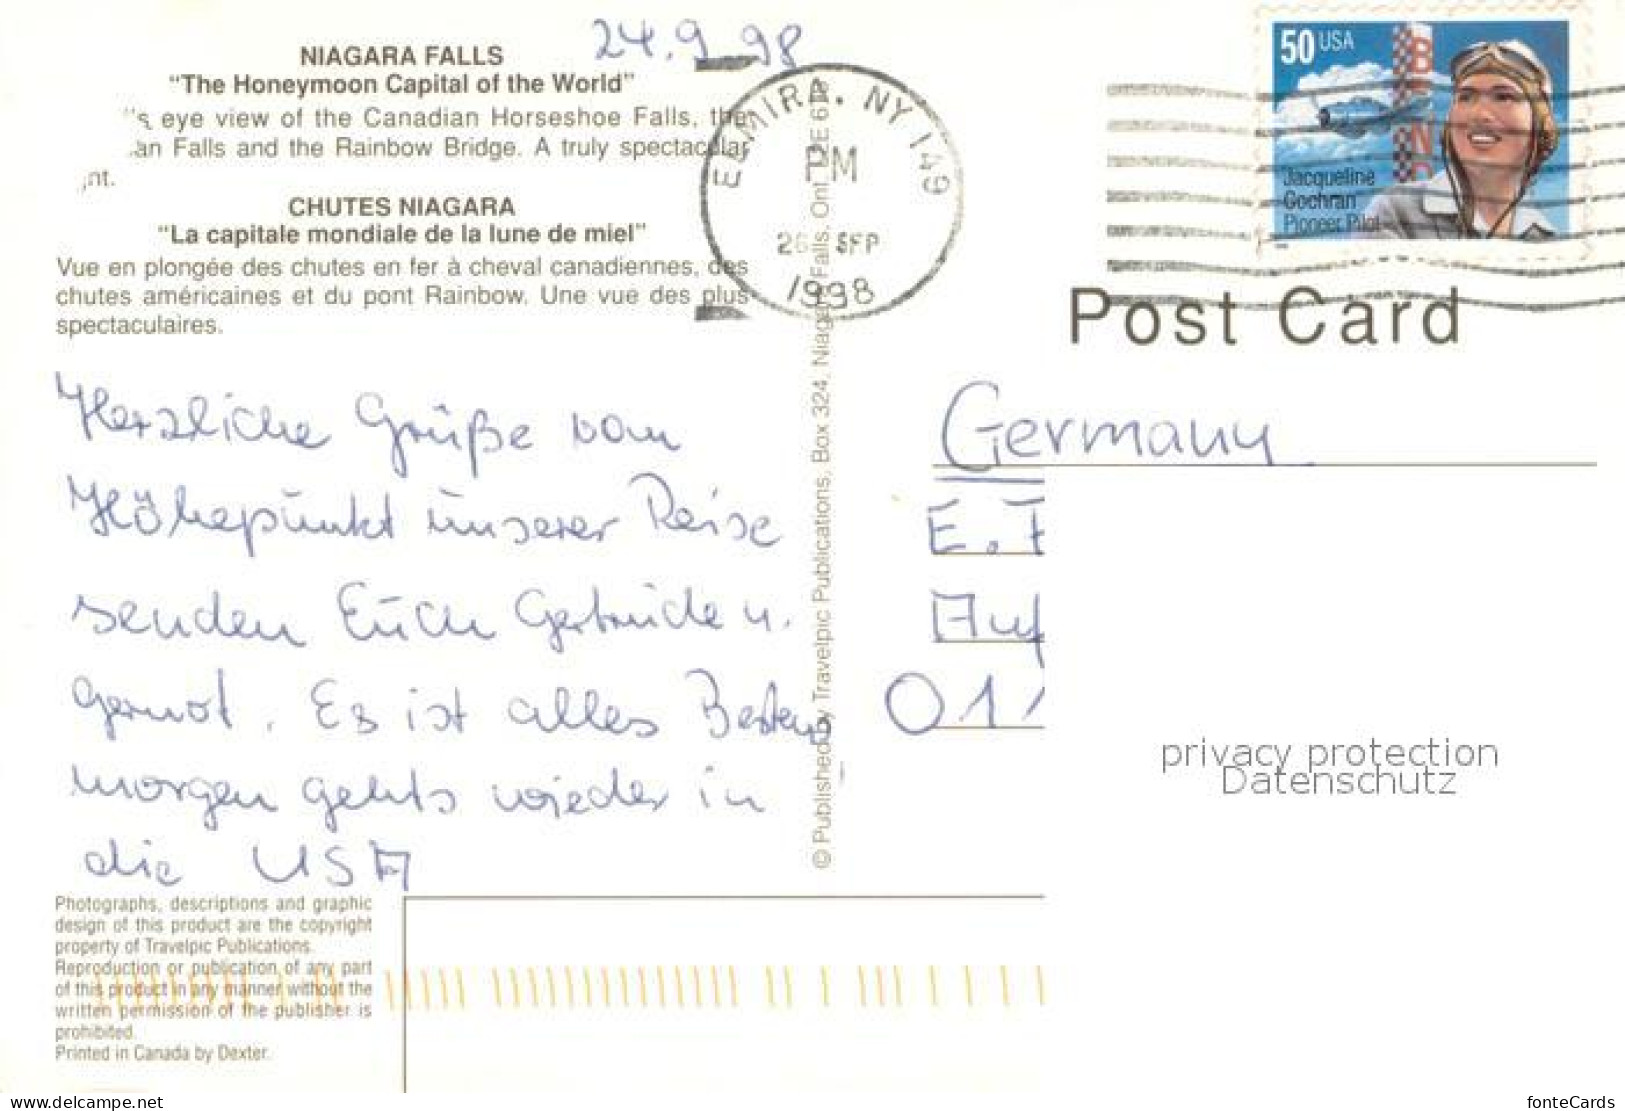 24.9.98
NIAGARA FALLS
“The Honeymoon Capital of the World”
's eye view of the Canadian Horseshoe Falls, the
an Falls and the Rainbow Bridge. A truly spectacular
nt.
CHUTES NIAGARA
“La capitale mondiale de la lune de miel”
Vue en plongée des chutes en fer à cheval canadiennes, des
chutes américaines et du pont Rainbow. Une vue des plus
spectaculaires.
Herzliche Grüße vom
Höhepunkt unserer Reise
senden Euch Gertrude u.
Gernot. Es ist alles Bestens
morgen gehts wieder in
die USA
Photographs, descriptions and graphic
design of this product are the copyright
property of Travelpic Publications.
Reproduction or publication of any part
of this product in any manner without the
written permission of the publisher is
prohibited.
Printed in Canada by Dexter.
© Published by Travelpic Publications, Box 324, Niagara Falls, Ont.
ELMIRA, NY 149
PM
SEP
1998
50 USA
BEND
Jacqueline
Cochran
Pioneer Pilot
Post Card
Germany
E.
Auf
01
privacy protection
Datenschutz
www.delcampe.net
fonteCards